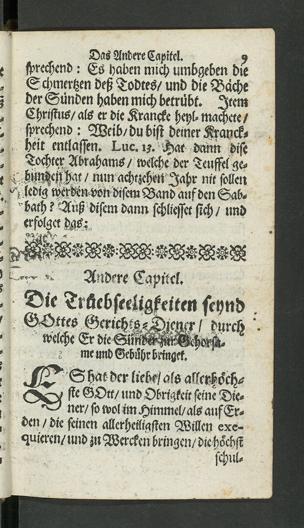 Das Andere Capitel. 9
sprechend : Es haben mich umbgeben die
Schmertzen deß Todtes/ und die Bäche
der Sünden haben mich betrübt. Item
Christus/ als er die Krancke heyl-machete/
sprechend : Weib/ du bist deiner Kranck-
heit entlassen. Luc. 13. Hat dann dise
Tochter Abrahams/ welche der Teuffel ge-
bunden hat/ nun achtzehen Jahr nit sollen
ledig werden von disem Band auf den Sab-
bath ? Auß disem dann schliesset sich/ und
erfolget das:
Andere Capitel.
Die Trüebseeligkeiten seynd
GOttes Gerichts-Diener/ durch
welche Er die Sünder zur Gehorsa-
me und Gebühr bringet.
ES hat der liebe/ als allerhöch-
ste GOtt/ und Obrigkeit seine Die-
ner/ so wol im Himmel/ als auf Er-
den/ die seinen allerheiligsten Willen exe-
quieren/ und zu Wercken bringen/ die höchst
schul-